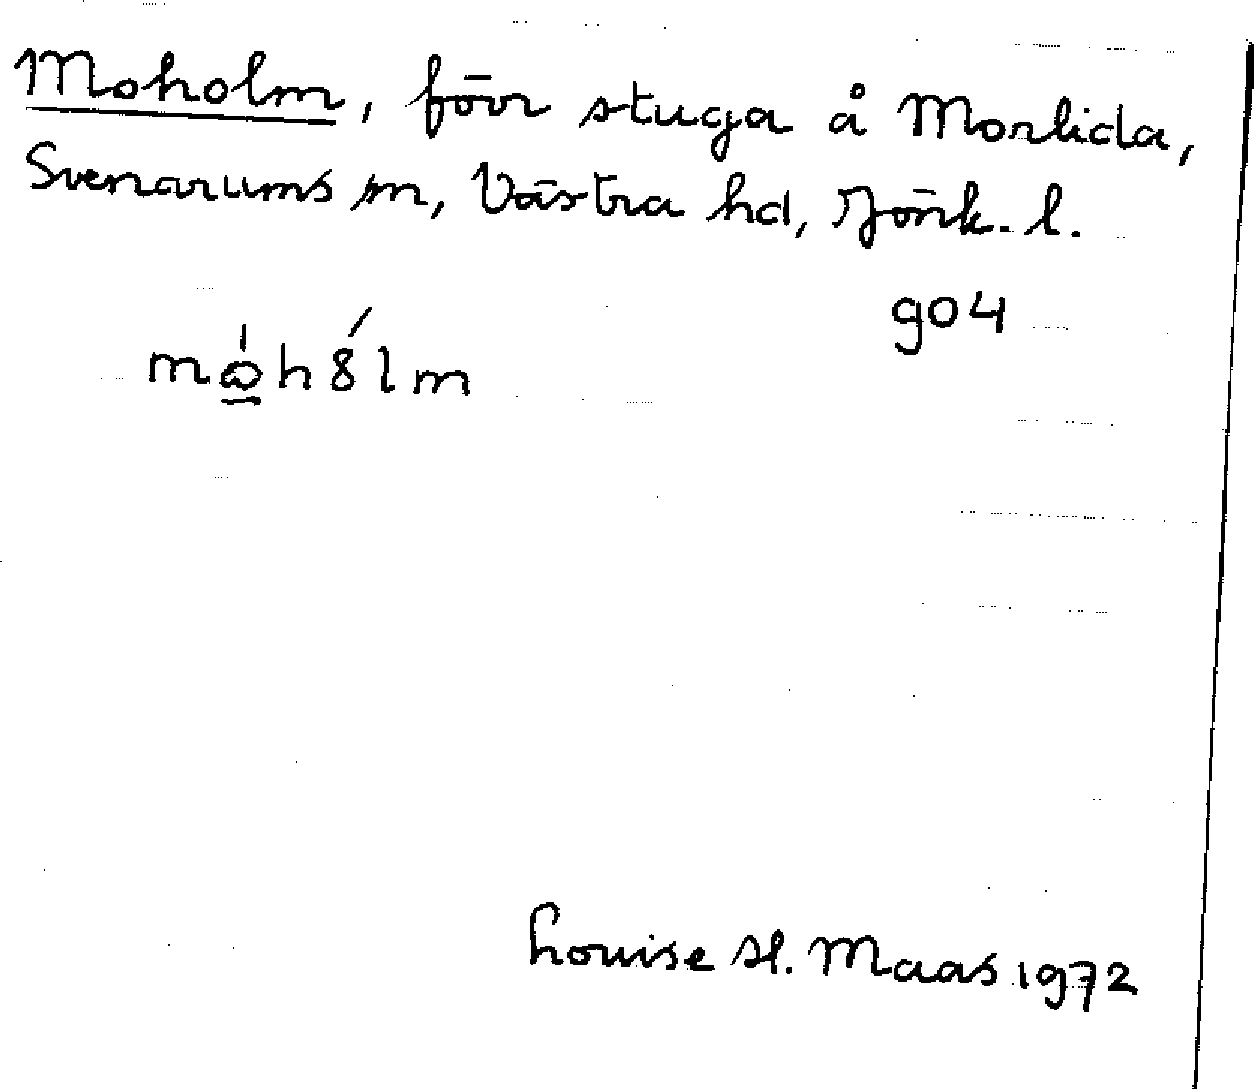 Moholm, förr stuga å Morlida,
Svenarums sn, Västra hd, Jönk. l.
904
mώ̲h8́lm
Louise H. Maas 1972